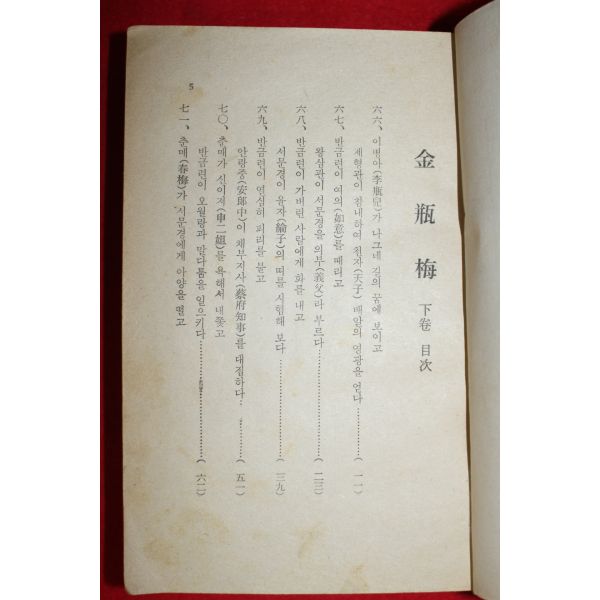 金瓶梅 下卷 目次
六六、이병아(李瓶兒)가 나그네 길의 꿈에 보이고
제형관이 참내하여 천자(天子) 배알의 영광을 얻다………(一一)
六七、반금련이 여의(如意)를 때리고
왕삼관이 서문경을 의부(義父)라 부르다………(二三)
六八、반금련이 가버린 사람에게 화를 내고
서문경이 윤자(綸子)의 띠를 시험해 보다………(三九)
六九、반금련이 열심히 피리를 불고
안랑중(安郎中)이 채부지사(蔡府知事)를 대접하다………(五一)
七〇、춘매가 신이저(申二姐)를 욕해서 내쫓고
반금련이 오월랑과 말다툼을 일으키다………(六二)
七一、춘매(春梅)가 서문경에게 아양을 떨고
5